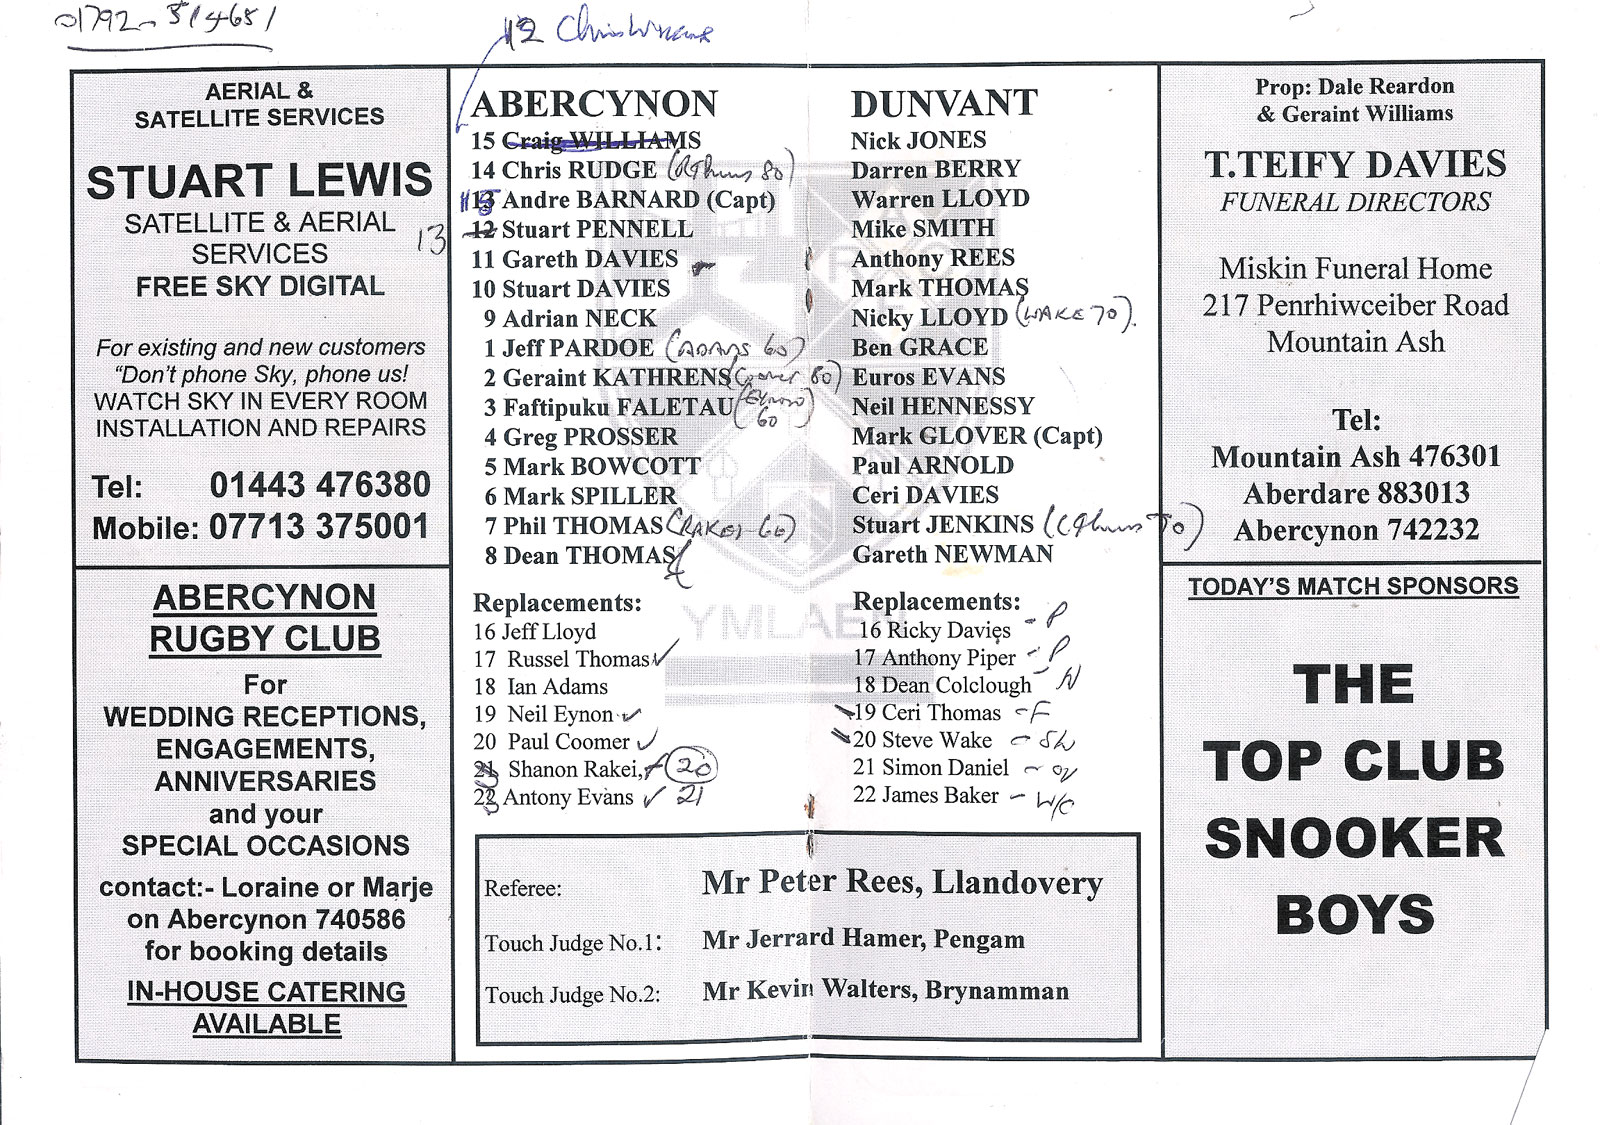 01792-514681
12 Chris
AERIAL &
SATELLITE SERVICES
STUART LEWIS
SATELLITE & AERIAL
SERVICES
FREE SKY DIGITAL
For existing and new customers
“Don't phone Sky, phone us!
WATCH SKY IN EVERY ROOM
INSTALLATION AND REPAIRS
Tel: 01443 476380
Mobile: 07713 375001
ABERCYNON
RUGBY CLUB
For
WEDDING RECEPTIONS,
ENGAGEMENTS,
ANNIVERSARIES
and your
SPECIAL OCCASIONS
contact:- Loraine or Marje
on Abercynon 740586
for booking details
IN-HOUSE CATERING
AVAILABLE
ABERCYNON
15 Craig WILLIAMS
14 Chris RUDGE 80)
13 Andre BARNARD (Capt)
13 12 Stuart PENNELL
11 Gareth DAVIES
10 Stuart DAVIES
9 Adrian NECK
1 Jeff PARDOE (ADAMS 60)
2 Geraint KATHRENS (Coomer 80)
3 Faftipuku FALETAU (EYNON 60)
4 Greg PROSSER
5 Mark BOWCOTT
6 Mark SPILLER
7 Phil THOMAS (RAKEI 60)
8 Dean THOMAS
Replacements:
16 Jeff Lloyd
17 Russel Thomas ✓
18 Ian Adams
19 Neil Eynon ✓
20 Paul Coomer ✓
21 Shanon Rakei, 20
22 Antony Evans ✓ 21
DUNVANT
Nick JONES
Darren BERRY
Warren LLOYD
Mike SMITH
Anthony REES
Mark THOMAS
Nicky LLOYD (WAKE 70).
Ben GRACE
Euros EVANS
Neil HENNESSY
Mark GLOVER (Capt)
Paul ARNOLD
Ceri DAVIES
Stuart JENKINS (C Thomas 70)
Gareth NEWMAN
Replacements:
16 Ricky Davies - P
17 Anthony Piper - P
18 Dean Colclough - N
19 Ceri Thomas - F
20 Steve Wake - SH
21 Simon Daniel -
22 James Baker - W/C
YMLAEN
Referee: Mr Peter Rees, Llandovery
Touch Judge No.1: Mr Jerrard Hamer, Pengam
Touch Judge No.2: Mr Kevin Walters, Brynamman
Prop: Dale Reardon
& Geraint Williams
T.TEIFY DAVIES
FUNERAL DIRECTORS
Miskin Funeral Home
217 Penrhiwceiber Road
Mountain Ash
Tel:
Mountain Ash 476301
Aberdare 883013
Abercynon 742232
TODAY'S MATCH SPONSORS
THE
TOP CLUB
SNOOKER
BOYS